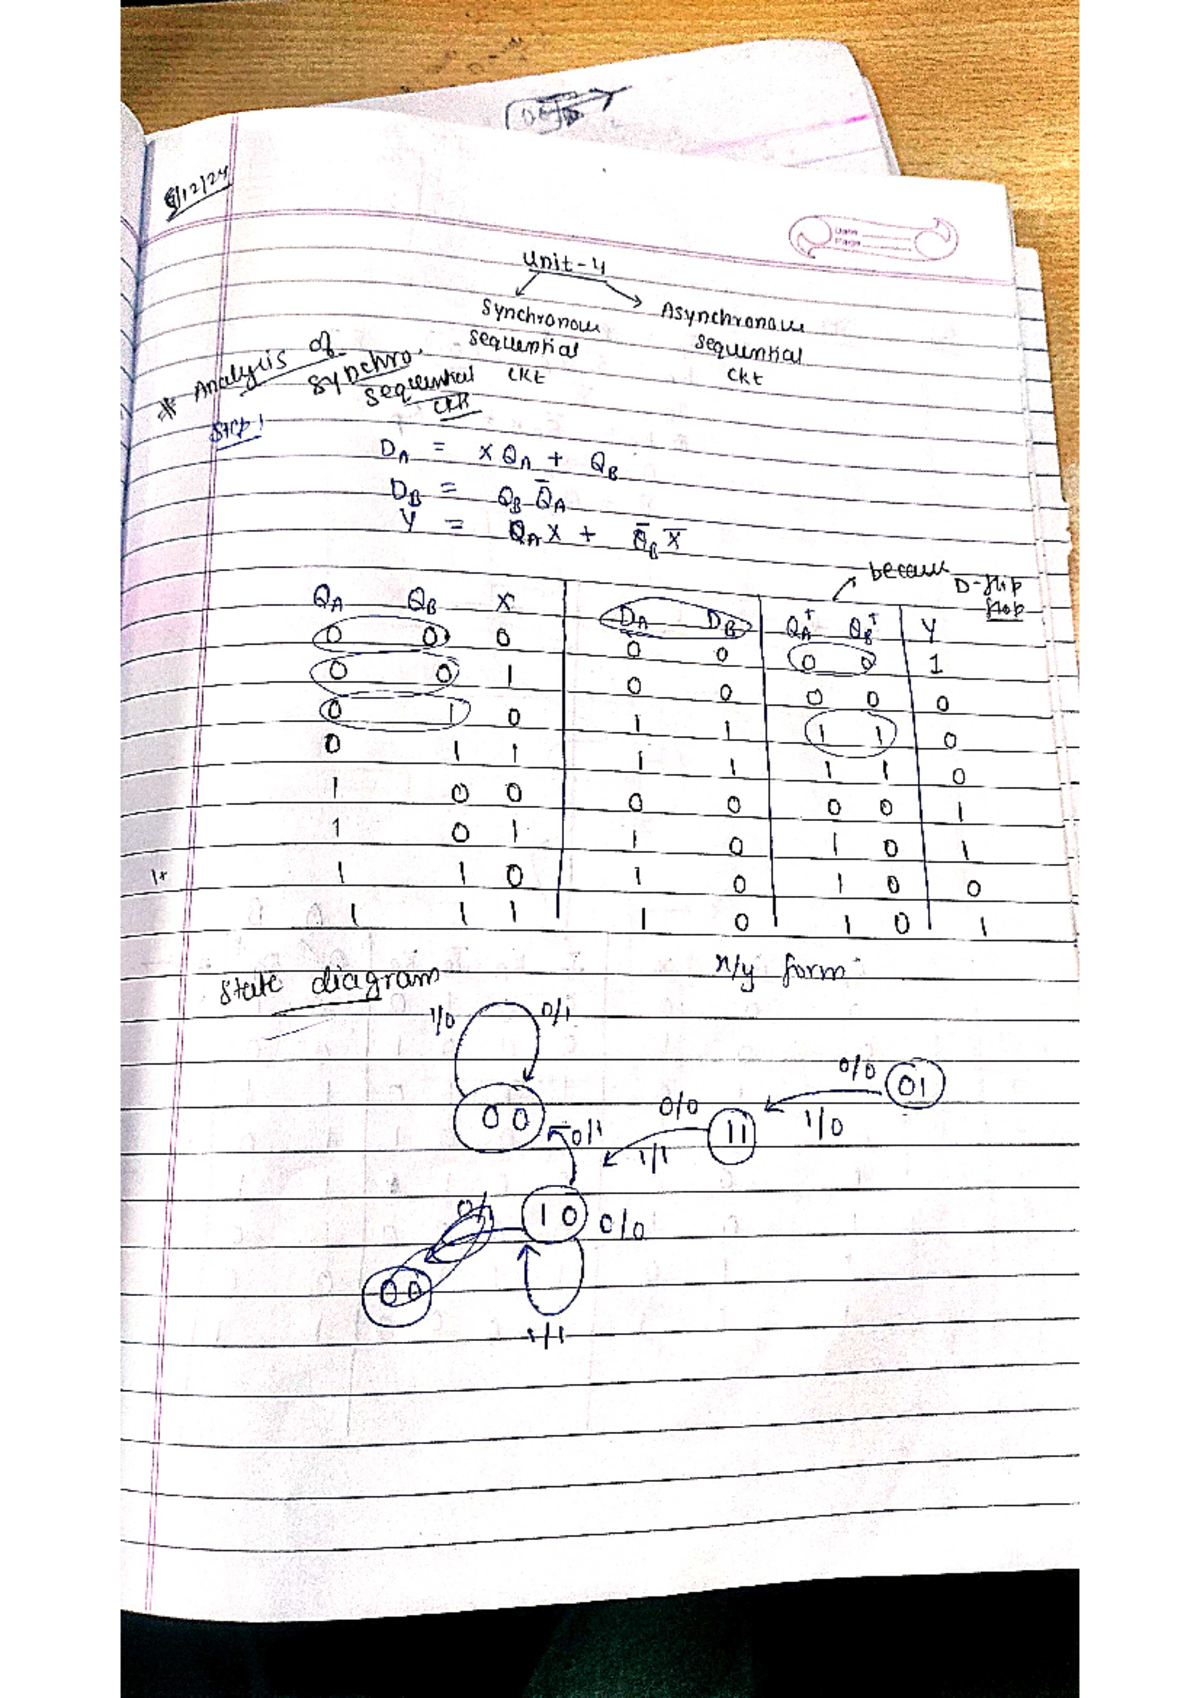 6/12/24
Date
Page
Unit-4
Synchronous sequential ckt
Asynchronous sequential ckt
* Analysis of synchro. sequential ckt
Step 1
D_A = X Q_A + Q_B
D_B = Q_B Q̄_A
Y = Q_A X + Q̄_B X̄
because D-flip flop
Q_A Q_B X D_A D_B Q_A⁺ Q_B⁺ Y
0 0 0 0 0 0 0 1
0 0 1 0 0 0 0 0
0 1 0 1 1 1 1 0
0 1 1 1 1 1 1 0
1 0 0 0 0 0 0 1
1 0 1 1 0 1 0 1
1 1 0 1 0 1 0 0
1 1 1 1 0 1 0 1
State diagram
x/y form
1/0 0/1
0/0 01
00 0/1 0/0 11 1/0
1/1
10 0/0
00
1/1